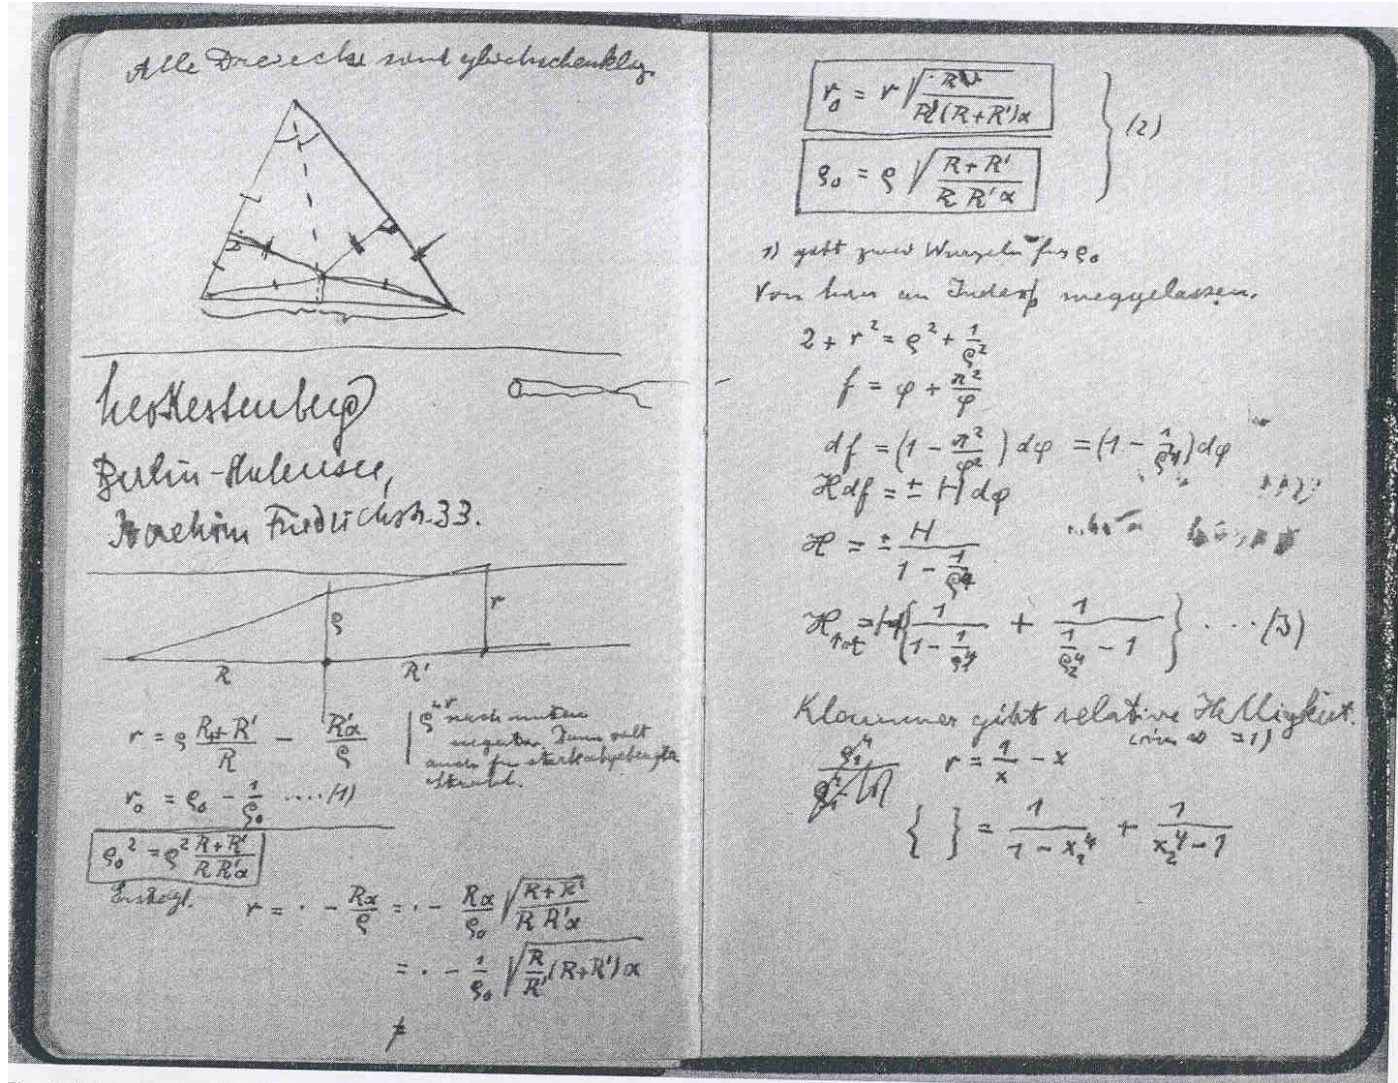 Alle Dreiecke sind gleichschenklig.
Leo Kestenberg
Berlin-Halensee,
Joachim Friedrichstr. 33.
ρ
r
R
R'
r = ρ (R+R')/R − R'α/ρ
ρ nach unten
negativ. Dann gilt
auch für stark abgebeugten
Strahl.
r₀ = ρ₀ − 1/ρ₀ ....(1)
ρ₀² = ρ² (R+R')/(R R'α)
r = · − Rα/ρ = · − Rα/ρ₀ √((R+R')/(R R'α))
= · − 1/ρ₀ √(R/R' (R+R')α)
r₀ = r √(R/(R'(R+R')α))
ρ₀ = ρ √((R+R')/(R R'α))
} (2)
1) gibt zwei Wurzeln für ρ₀
Von hier an Index weggelassen.
2 + r² = ρ² + 1/ρ²
f = φ + π²/φ
df = (1 − π²/φ²) dφ = (1 − 1/ρ⁴) dφ
ℋ df = ± H dφ
ℋ = ± H/(1 − 1/ρ⁴)
ℋtot = H {1/(1 − 1/ρ₁⁴) + 1/(1/ρ₂⁴ − 1)} ... (3)
Klammer gibt relative Helligkeit.
r = 1/x − x
{ } = 1/(1 − x₁⁴) + 1/(x₂⁴ − 1)